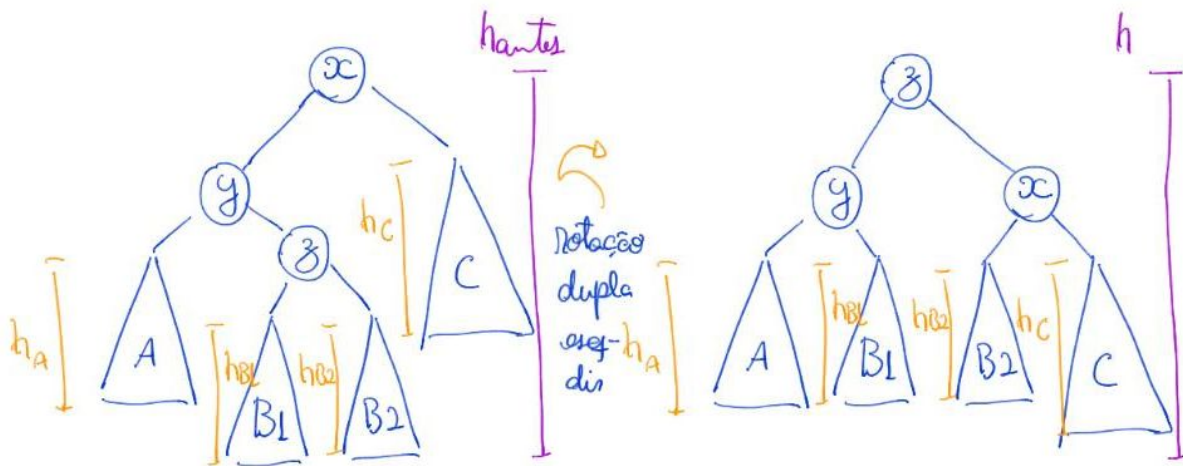 hantes
h
x
z
y
z
hC
C
hA
A
hB1
B1
hB2
B2
rotação
dupla
esq-
dir
y
x
hA
A
hB1
B1
hB2
B2
hC
C